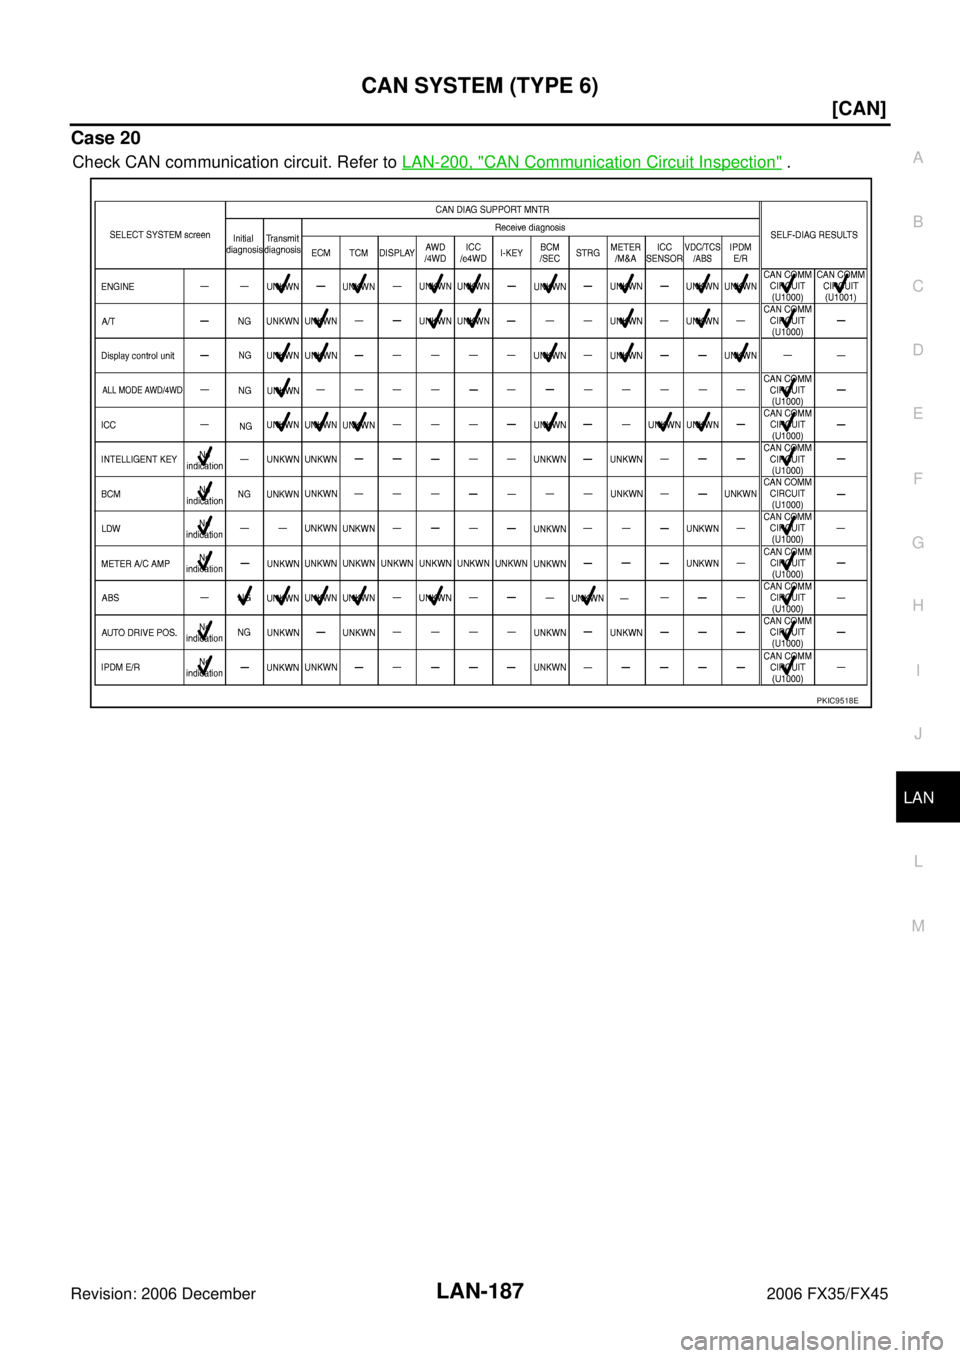 CAN SYSTEM (TYPE 6)
[CAN]
Case 20
Check CAN communication circuit. Refer to LAN-200, "CAN Communication Circuit Inspection" .
SELECT SYSTEM screen
CAN DIAG SUPPORT MNTR
SELF-DIAG RESULTS
Initial diagnosis
Transmit diagnosis
Receive diagnosis
ECM TCM DISPLAY AWD /4WD ICC /e4WD I-KEY BCM /SEC STRG METER /M&A ICC SENSOR VDC/TCS /ABS IPDM E/R
ENGINE — — UNKWN — UNKWN — UNKWN UNKWN — UNKWN — UNKWN — UNKWN UNKWN CAN COMM CIRCUIT (U1000) CAN COMM CIRCUIT (U1001)
A/T — NG UNKWN UNKWN — — UNKWN UNKWN — — — UNKWN — UNKWN — CAN COMM CIRCUIT (U1000) —
Display control unit — NG UNKWN UNKWN — — — — — UNKWN — UNKWN — — UNKWN — —
ALL MODE AWD/4WD — NG UNKWN — — — — — — — — — — — — CAN COMM CIRCUIT (U1000) —
ICC — NG UNKWN UNKWN UNKWN — — — — UNKWN — — UNKWN UNKWN — CAN COMM CIRCUIT (U1000) —
INTELLIGENT KEY No indication — UNKWN UNKWN — — — — — UNKWN — UNKWN — — — CAN COMM CIRCUIT (U1000) —
BCM No indication NG UNKWN UNKWN — — — — — — — UNKWN — — UNKWN CAN COMM CIRCUIT (U1000) —
LDW No indication — — UNKWN UNKWN — — — — UNKWN — — — UNKWN — CAN COMM CIRCUIT (U1000) —
METER A/C AMP No indication — UNKWN UNKWN UNKWN UNKWN UNKWN UNKWN UNKWN UNKWN — — — UNKWN — CAN COMM CIRCUIT (U1000) —
ABS — NG UNKWN UNKWN UNKWN — UNKWN — — — UNKWN — — — — CAN COMM CIRCUIT (U1000) —
AUTO DRIVE POS. No indication NG UNKWN — UNKWN — — — — UNKWN — UNKWN — — — CAN COMM CIRCUIT (U1000) —
IPDM E/R No indication — UNKWN UNKWN — — — — — UNKWN — — — — — CAN COMM CIRCUIT (U1000) —
PKIC9518E
A
B
C
D
E
F
G
H
I
J
LAN
L
M
Revision: 2006 December
LAN-187
2006 FX35/FX45
carmanualsonline.info